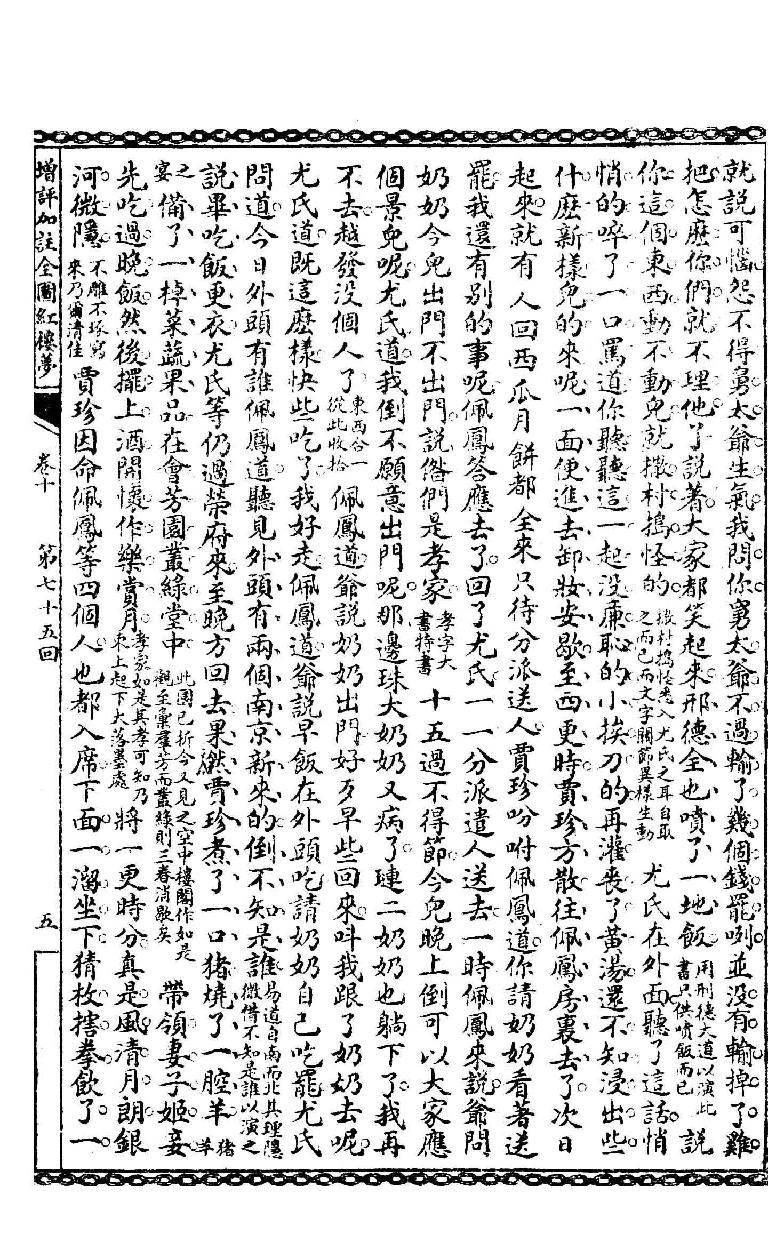 就說可惱怨不得舅太爺生氣我問你舅太爺不過輸了幾個錢罷咧並没有輸掉了雞
把怎麽你們就不理他了說著大家都笑起來邢德全也噴了一地飯用刑德大道以演此書只供噴飯而已說
你這個東西動不動兒就撒村搗怪的撒村搗怪悉入尤氏之耳自取之而已而文字關節異樣生動尤氏在外面聽了這話悄
悄的啐了一口罵道你聽聽這一起没廉恥的小挨刀的再灌喪了黄湯還不知浸出些
什麽新樣兒的來呢一面便進去卸妝安歇至四更時賈珍方散往佩鳳房裏去了次日
起來就有人回西瓜月餅都全來只待分派送人賈珍吩咐佩鳳道你請奶奶看著送
罷我還有别的事呢佩鳳答應去了回了尤氏一一分派遣人送去一時佩鳳來說爺問
奶奶今兒出門不出門說偺們是孝家孝字大書特書十五過不得節今兒晚上倒可以大家應
個景兒呢尤氏道我倒不願意出門呢那邊珠大奶奶又病了璉二奶奶也躺下了我再
不去越發没個人了東西合一從此收拾佩鳳道爺說奶奶出門好歹早些回來呌我跟了奶奶去呢
尤氏道既這麽樣快些吃了我好走佩鳳道爺說早飯在外頭吃請奶奶自己吃罷尤氏
問道今日外頭有誰佩鳳道聽見外頭有兩個南京新來的倒不知是誰易道自南而北其理隱微借不知是誰以演之
說畢吃飯更衣尤氏等仍過榮府來至晚方回去果然賈珍煮了一口猪燒了一腔羊猪羊
之宴備了一棹菜蔬果品在會芳園叢綠堂中此園已拆今又見之空中樓閣作如是觀至彙羣芳而叢綠則三春消歇矣帶領妻子姬妾
先吃過晚飯然後擺上酒開懷作樂賞月孝家如是其孝可知乃東上起下大落墨處將一更時分真是風清月朗銀
河微隱不雕不琢寫來乃爾清佳賈珍因命佩鳳等四個人也都入席下面一溜坐下猜枚搳拳飲了一
增評加註全圖紅樓夢
卷十
第七十五回
五